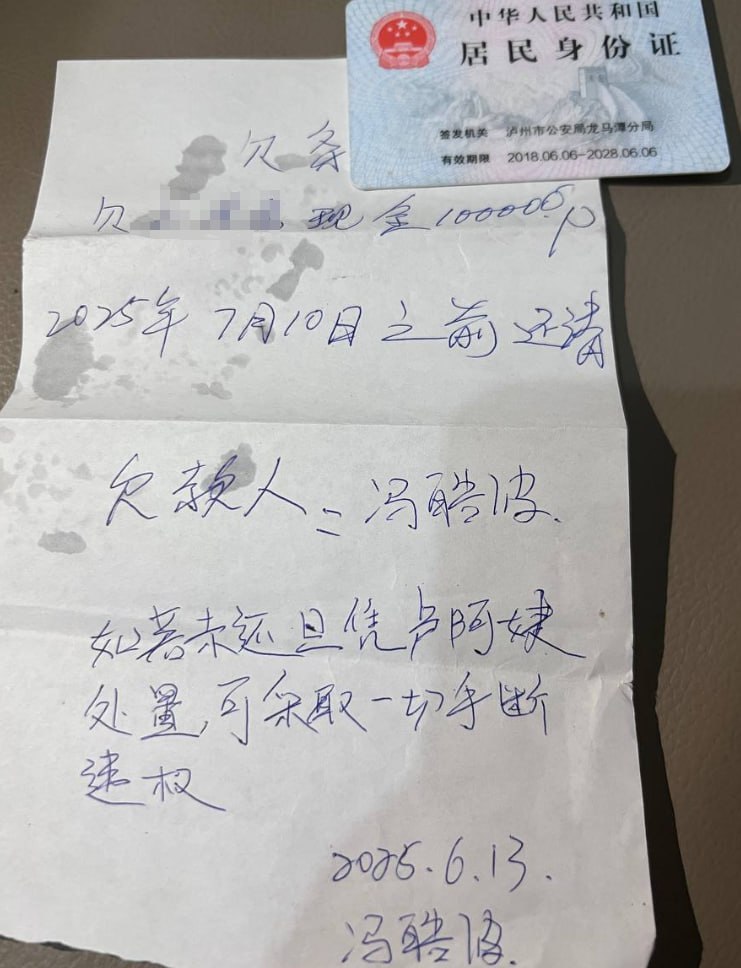 中华人民共和国
居民身份证
签发机关 泸州市公安局龙马潭分局
有效期限 2018.06.06-2028.06.06
欠条
欠 现金100000
2025年7月10日之前还清
欠款人=冯酷波.
如若未还且凭卢阿婕
处置,可采取一切手断
违权
2025.6.13.
冯酷波.